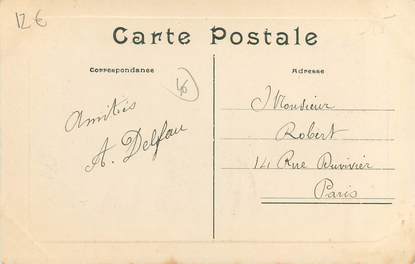 12 €
Carte Postale
Correspondance
Adresse
Amitiés
A. Delfau
Monsieur
Robert
14 Rue Duvivier
Paris